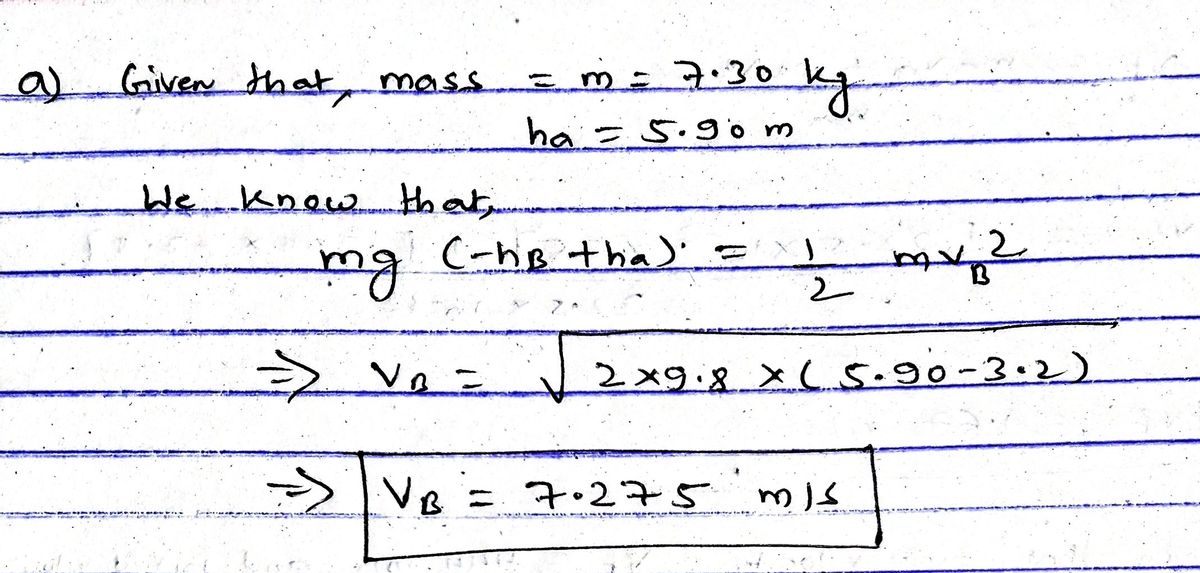 a) Given that, mass = m = 7.30 kg
ha = 5.90 m
We know that,
mg (-hB + ha) = 1/2 mvB2
=> VB = √2×9.8×(5.90-3.2)
=> VB = 7.275 m/s